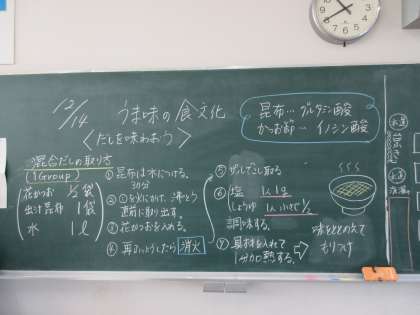 12/14
うま味の食文化
〈だしを味わおう〉
昆布…グルタミン酸
かつお節…イノシン酸
混合だしの取り方
(1Group)
花かつお 1/2袋
出汁昆布 1袋
水 1ℓ
①昆布は水につける。
30分
②①を火にかけ、沸とう
直前に取り出す。
③花かつおを入れる。
④再びふっとうしたら消火
⑤ザルでこし取る
⑥塩
しょうゆ
調味する。
⑦具材を入れて
1分加熱する。
味をととのえて
もりつけ